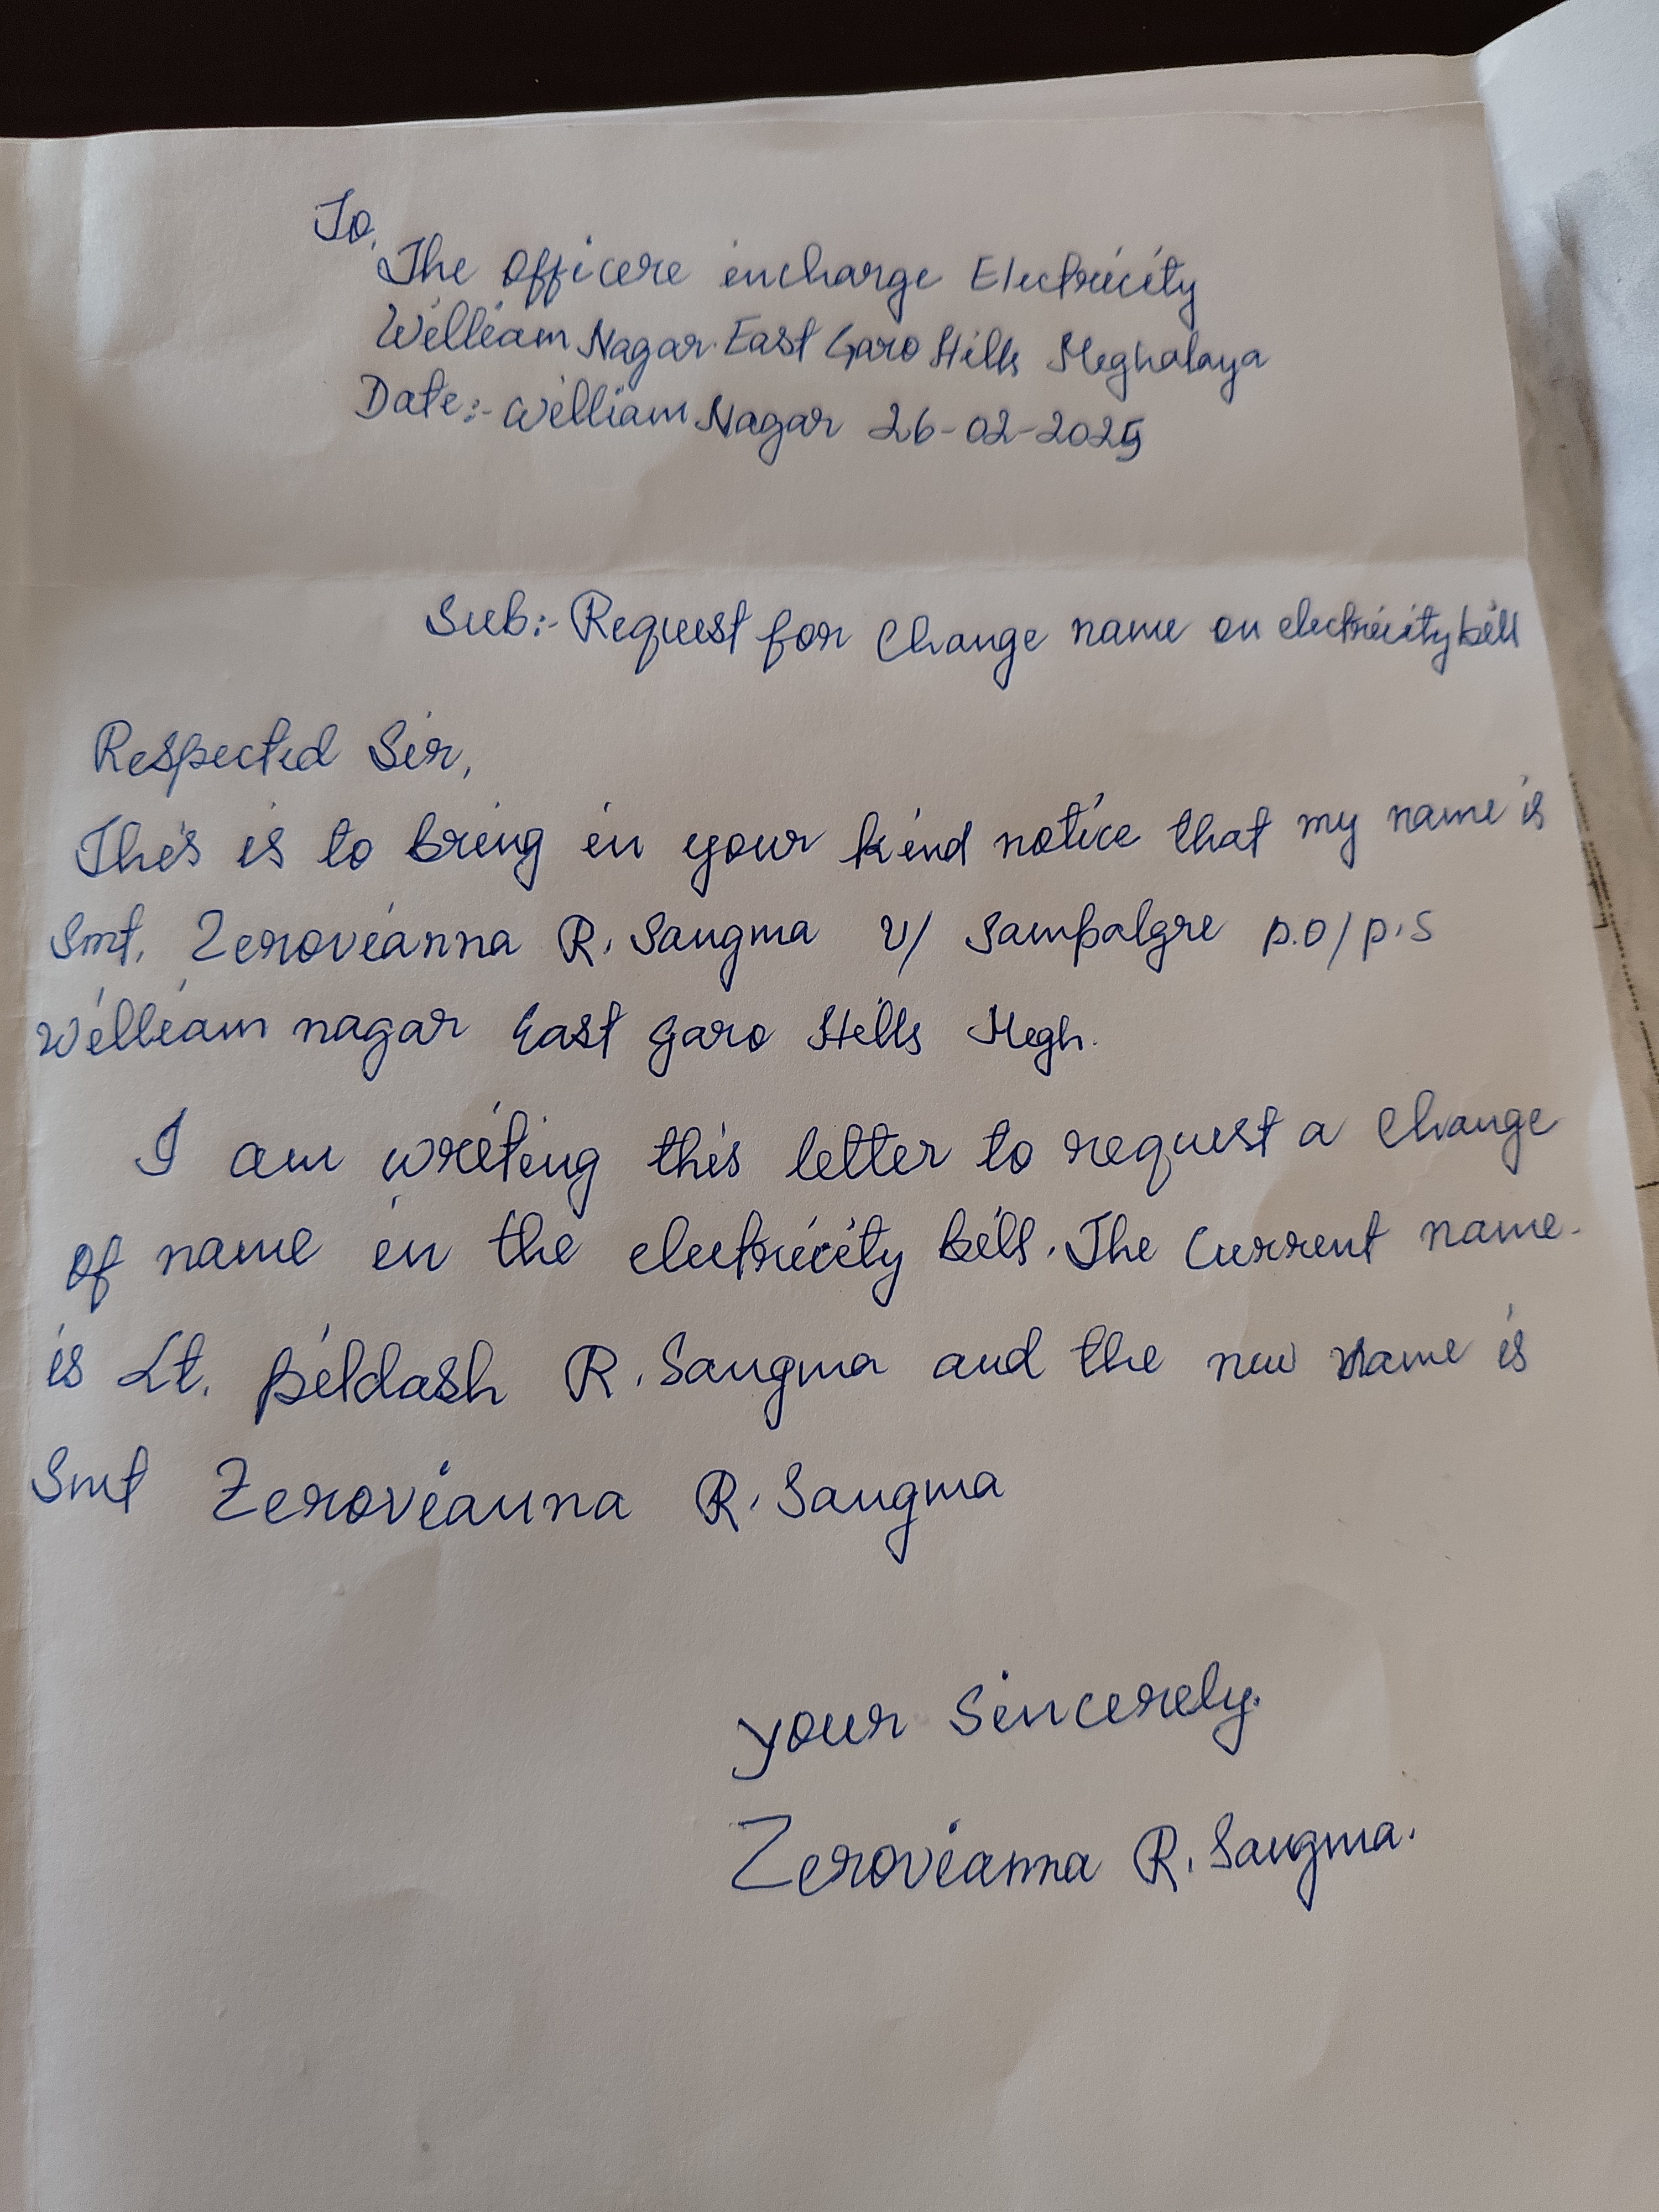 To,
The Officere incharge Electricity
William Nagar East Garo Hills Meghalaya
Date:- William Nagar 26-02-2025
Sub:- Request for Change name on electricity bill
Respected Sir,
This is to bring in your kind notice that my name is
Smt. Zerovianna R. Sangma V/ Sampalgre P.O/P.S
William nagar East Garo Hills Megh.
I am writing this letter to request a change
of name in the electricity bill. The Current name
is Lt. Pildash R. Sangma and the new name is
Smt Zerovianna R. Sangma
your Sincerely.
Zerovianna R. Sangma.